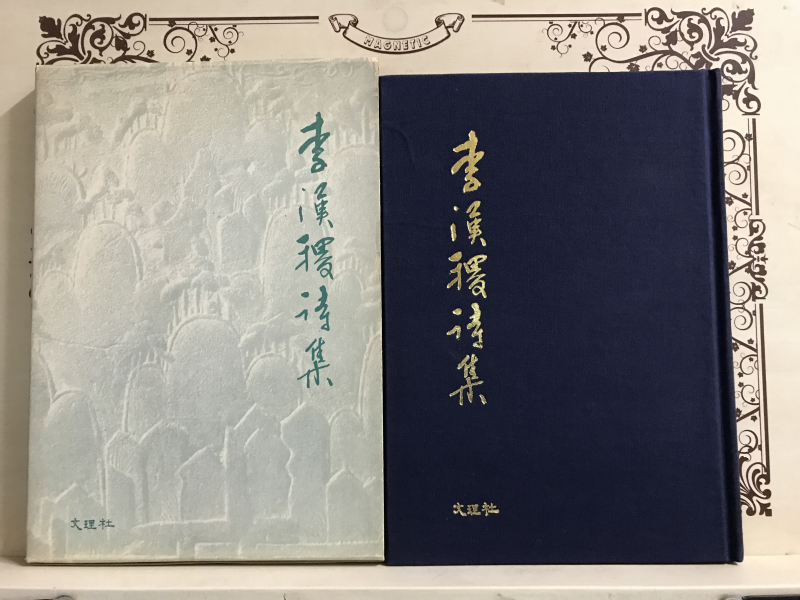 MAGNETIC
李漢稷詩集
文理社
李漢稷詩集
文理社